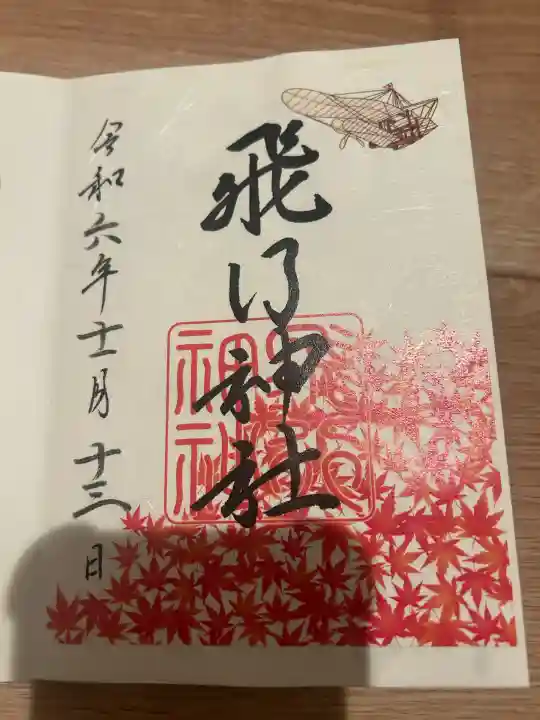 飛行神社
令和六年十一月十三日